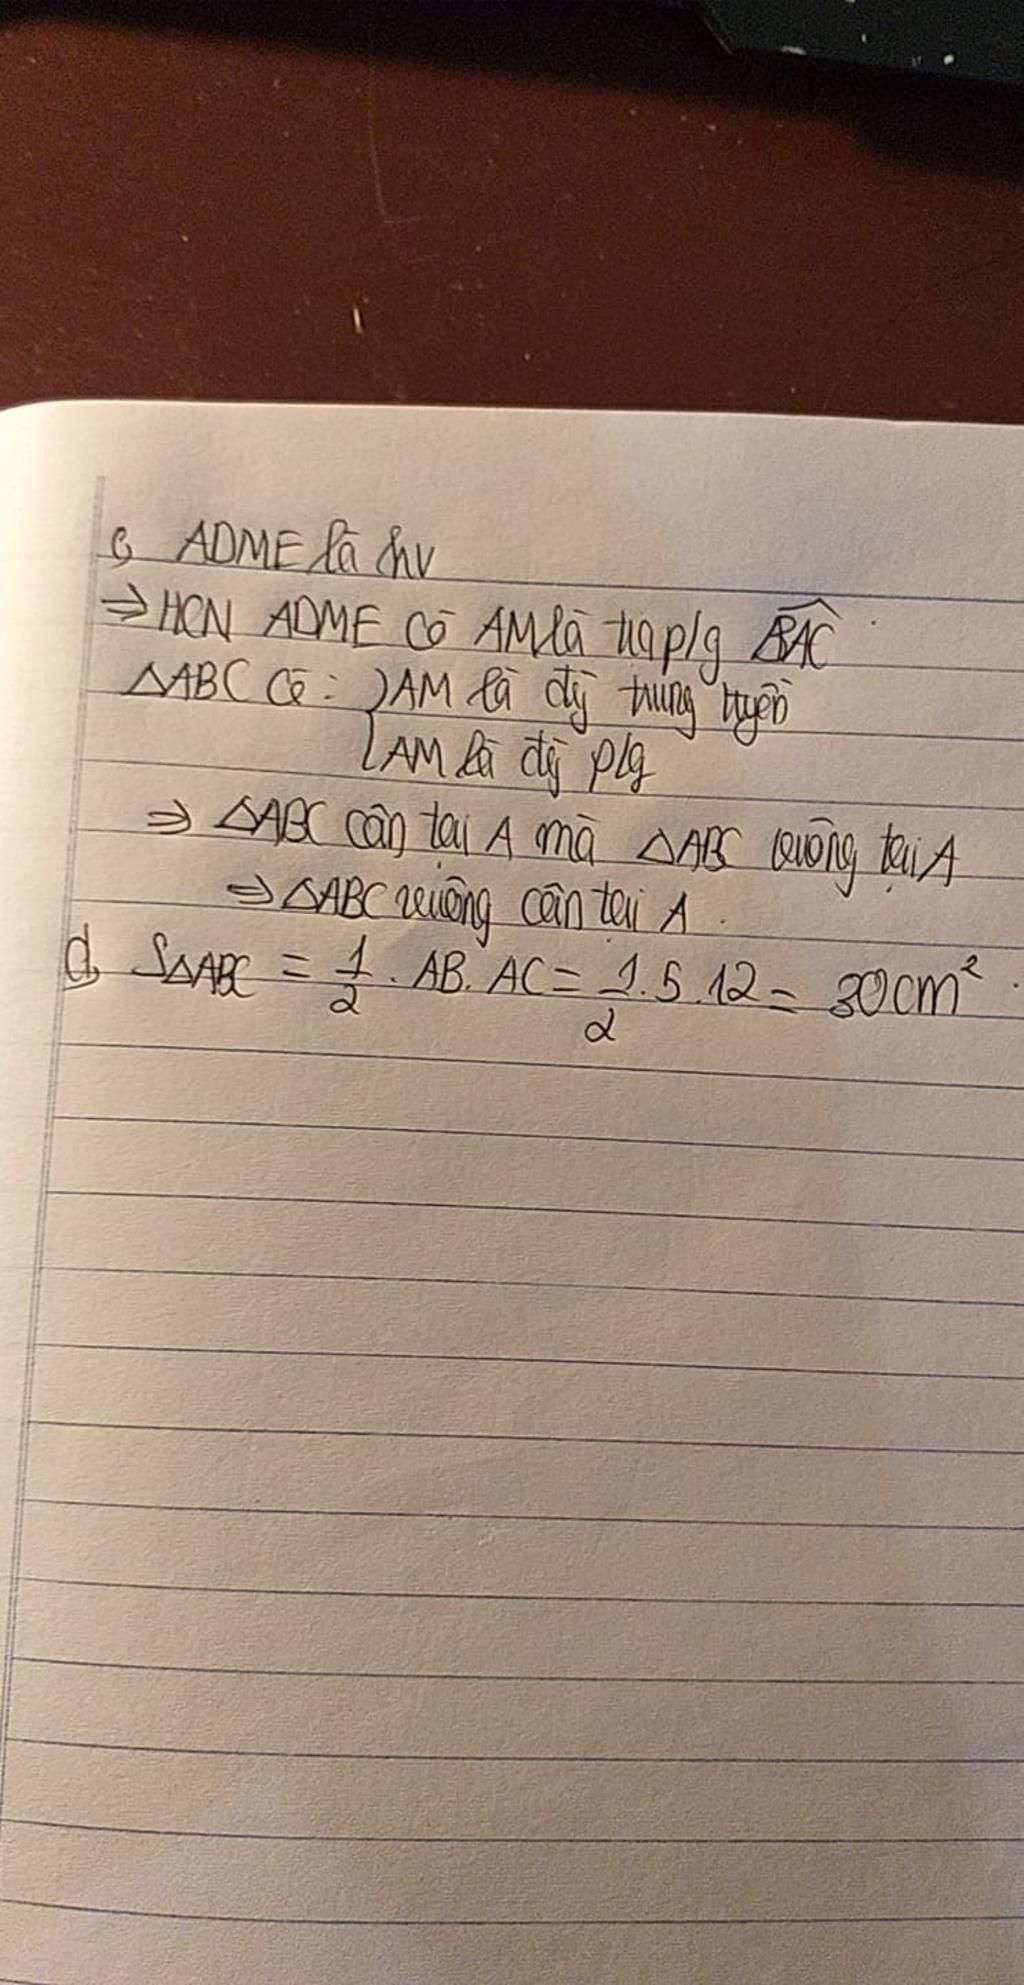 c, ADME là hv
⇒ HCN ADME có AM là tia p/g BAC
△ABC có: AM là đg trung tuyến
AM là đg p/g
⇒ △ABC cân tại A mà △ABC vuông tại A
⇒ △ABC vuông cân tại A.
d, S△ABC = 1/2 . AB. AC = 1/2 . 5 . 12 = 30 cm²